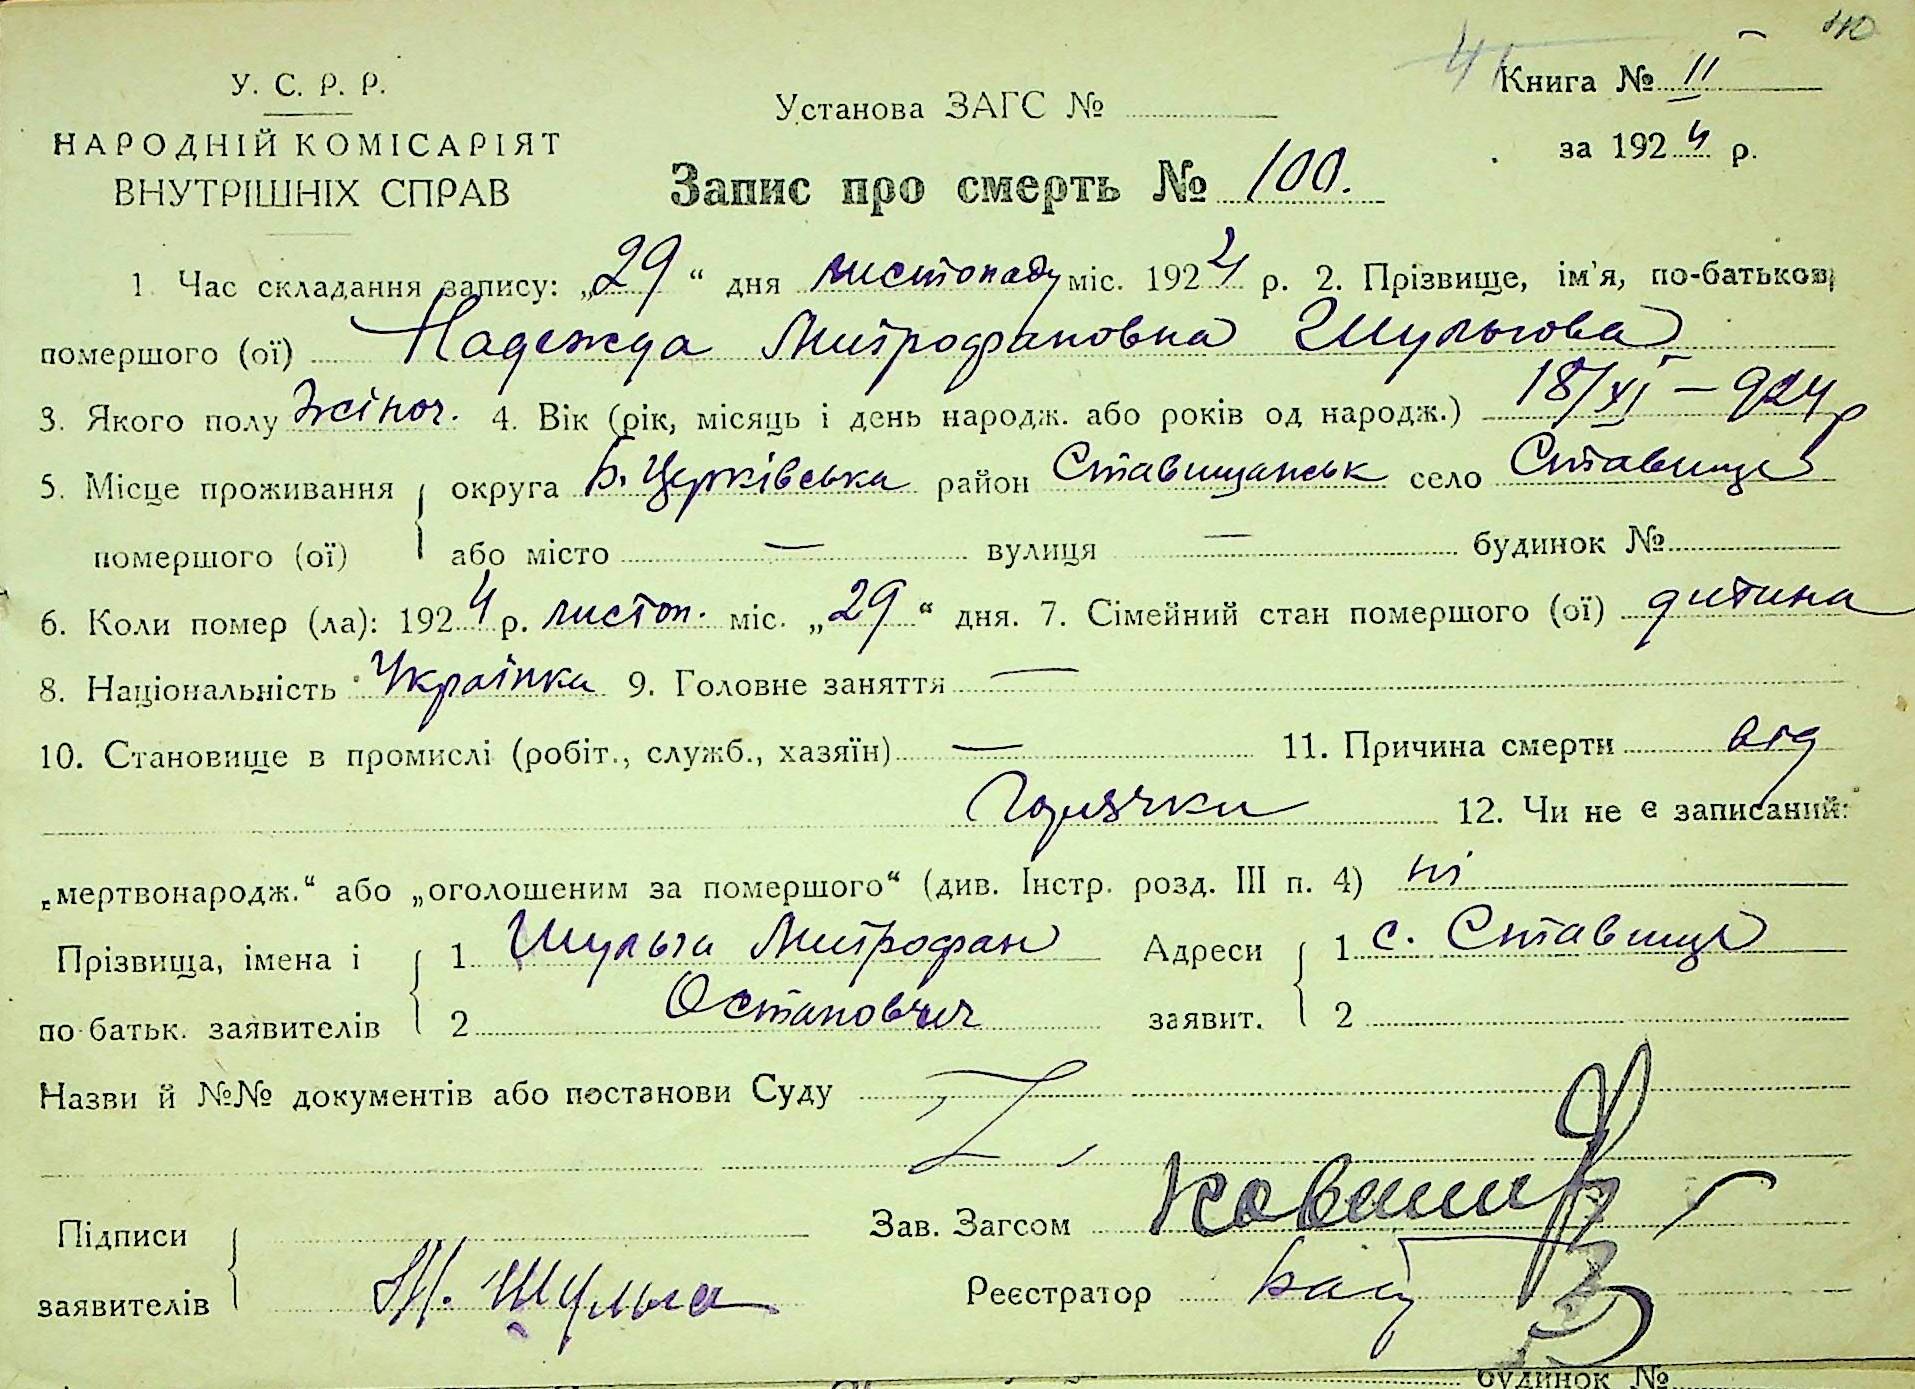 40
41
У. С. Р. Р.
НАРОДНІЙ КОМІСАРІЯТ
ВНУТРІШНІХ СПРАВ
Установа ЗАГС №
Книга № II
за 1924 р.
Запис про смерть № 100.
1 Час складання запису: „29“ дня листопаду міс. 1924 р. 2. Прізвище, ім'я, по-батькові
помершого (ої) Надежда Митрофановна Шульгова
3. Якого полу жіноч. 4. Вік (рік, місяць і день народж. або років од народж.) 18/XI – 924 р
5. Місце проживання округа Б. Церківська район Ставищанськ село Ставище
помершого (ої) або місто — вулиця — будинок №
6. Коли помер (ла): 1924 р. листоп. міс. „29“ дня. 7. Сімейний стан помершого (ої) дитина
8. Національність Українка 9. Головне заняття —
10. Становище в промислі (робіт., служб., хазяїн) — 11. Причина смерти від
Горячки 12. Чи не є записаний:
„мертвонародж.“ або „оголошеним за помершого“ (див. Інстр. розд. III п. 4) ні
Прізвища, імена і 1 Шульга Митрофан Адреси 1 с. Ставище
по батьк. заявителів 2 Остапович заявит. 2
Назви й №№ документів або постанови Суду
Підписи Зав. Загсом
заявителів М. Шульга Реєстратор
будинок №